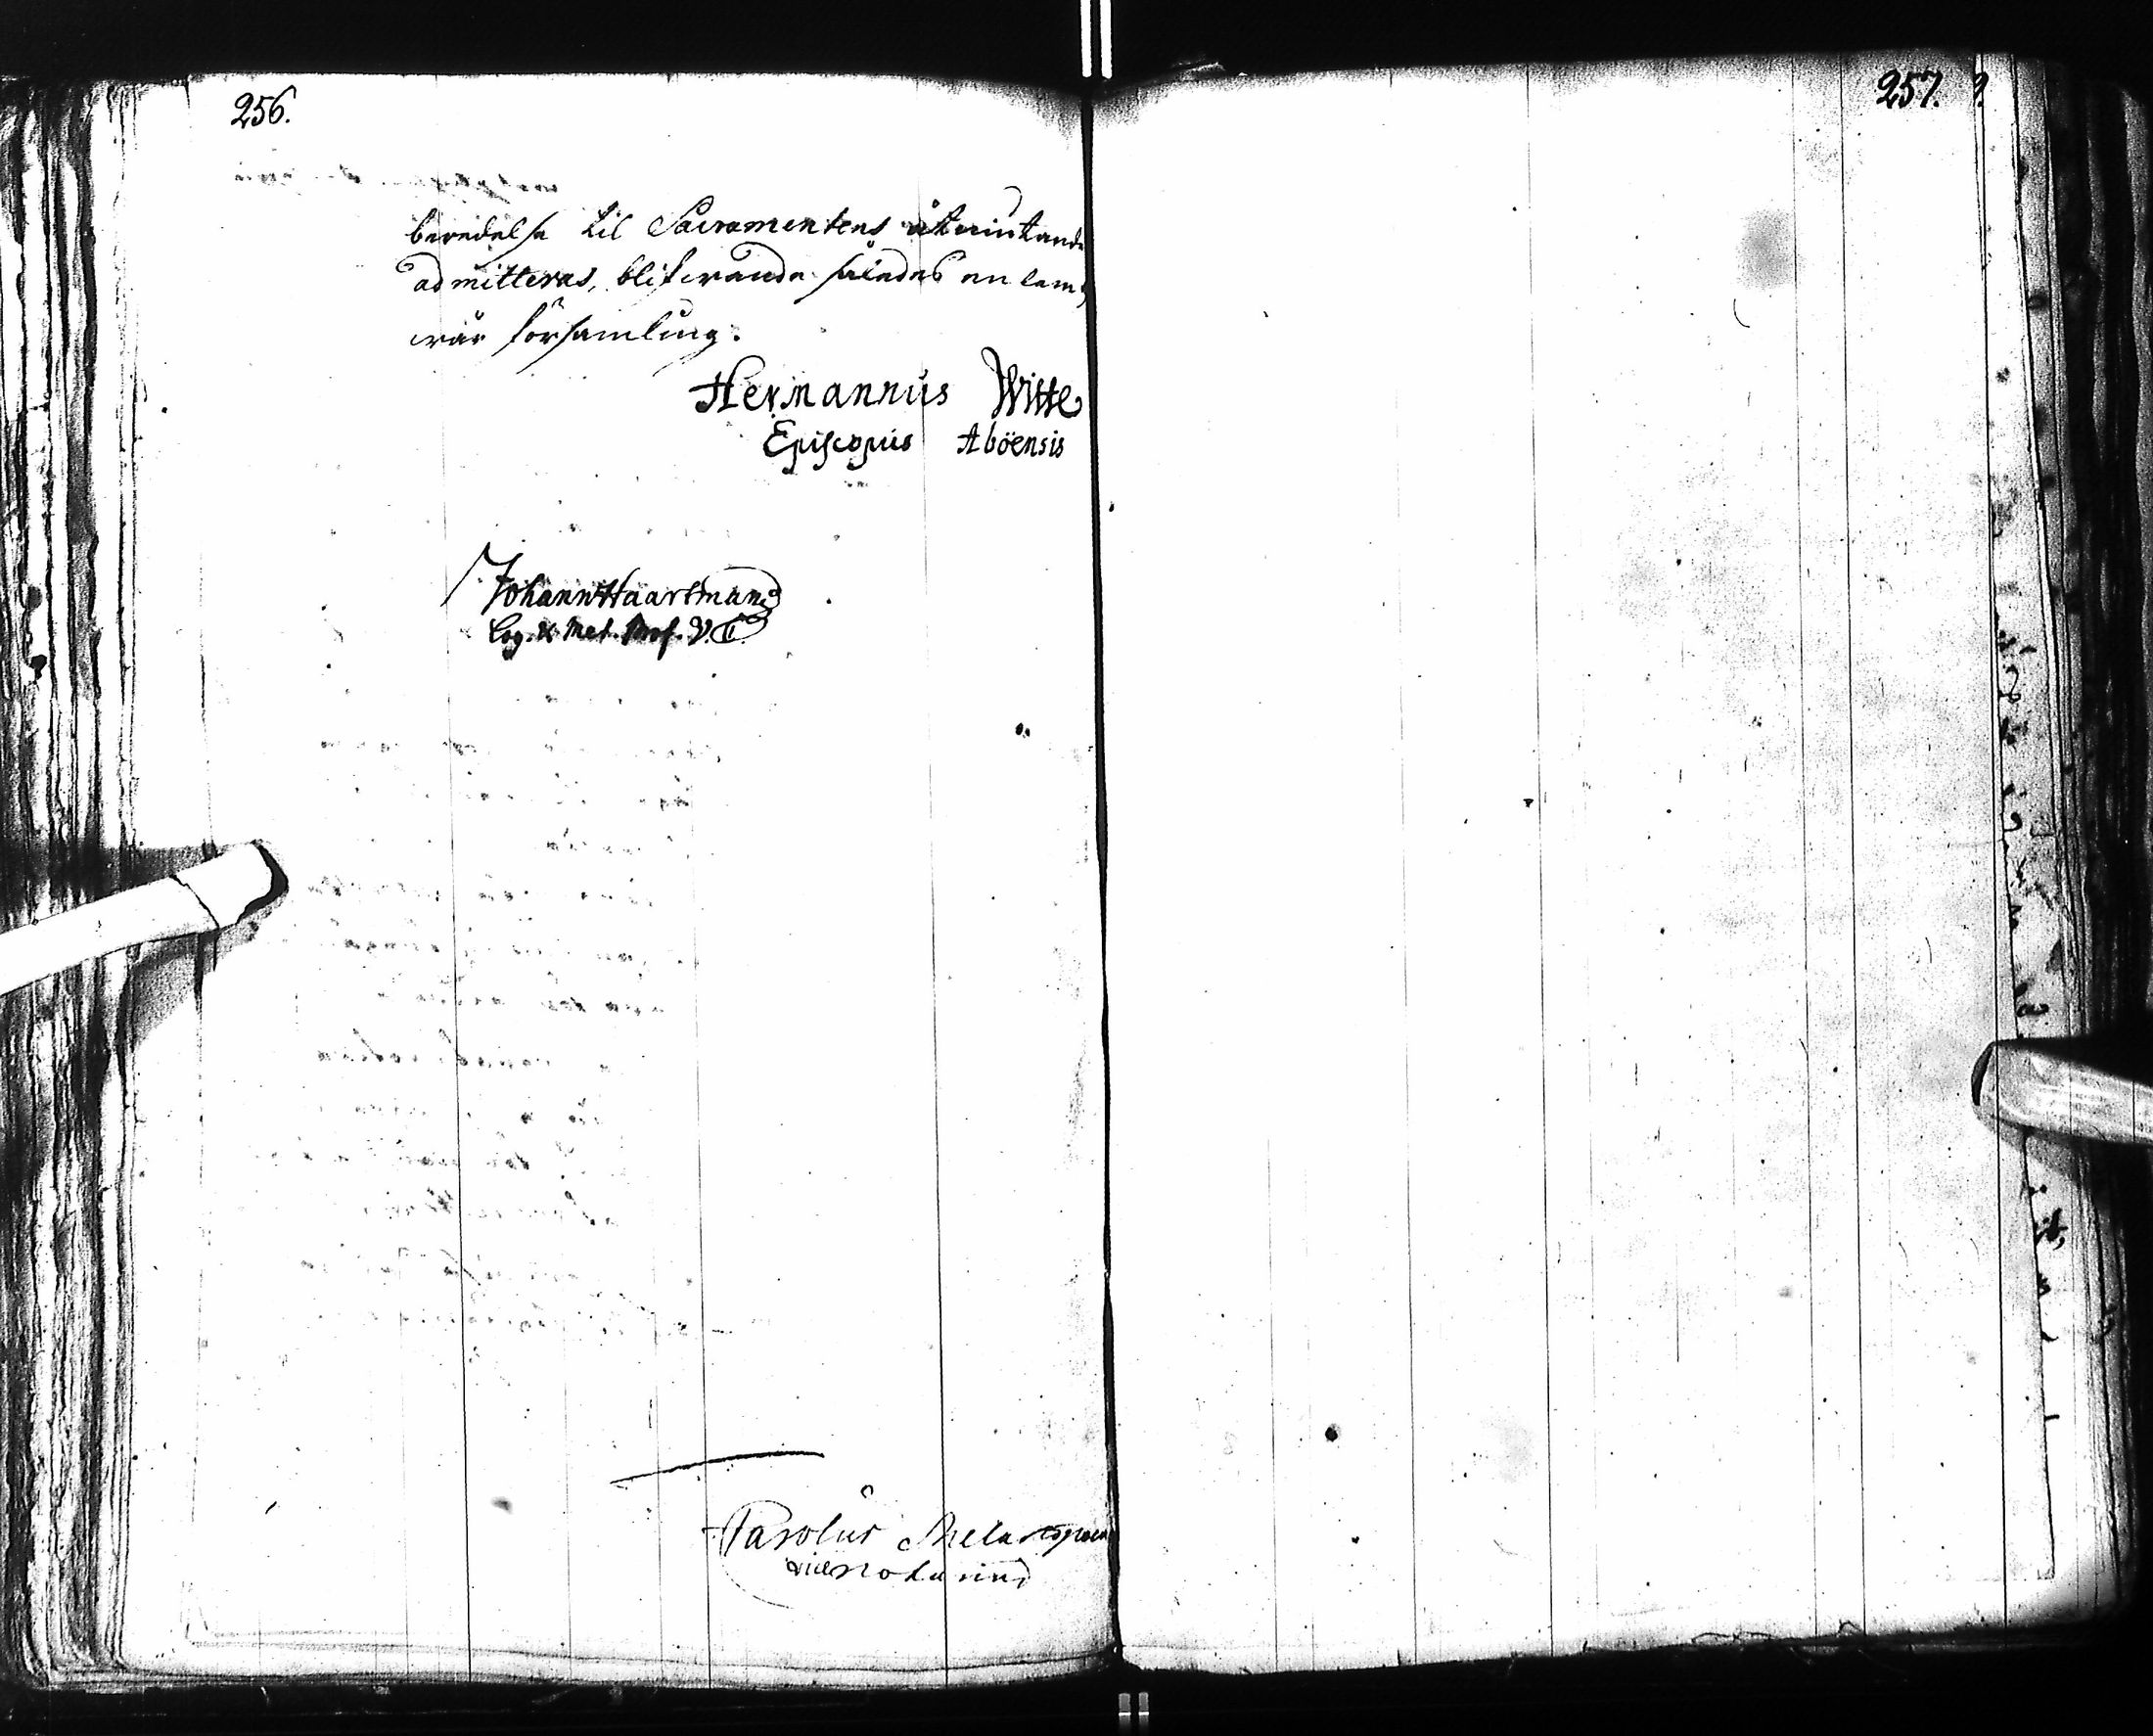 256.
beredelse til Sacramentens åtniutande
admitteras, blifwande således en lem af
wår församling.
Hermannus Witte
Episcopus Aböensis
Johann Haartman
Log. & Met. Prof.
Carolus
Notarius
257.